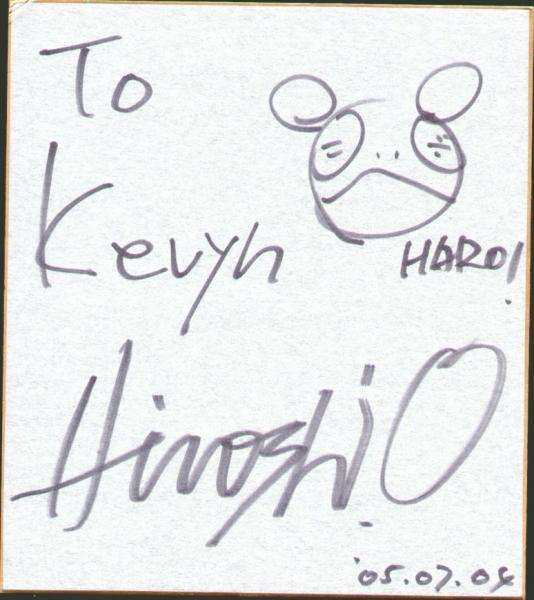 To
Kevyn
HARO!
Hiroshi O
'05.07.04